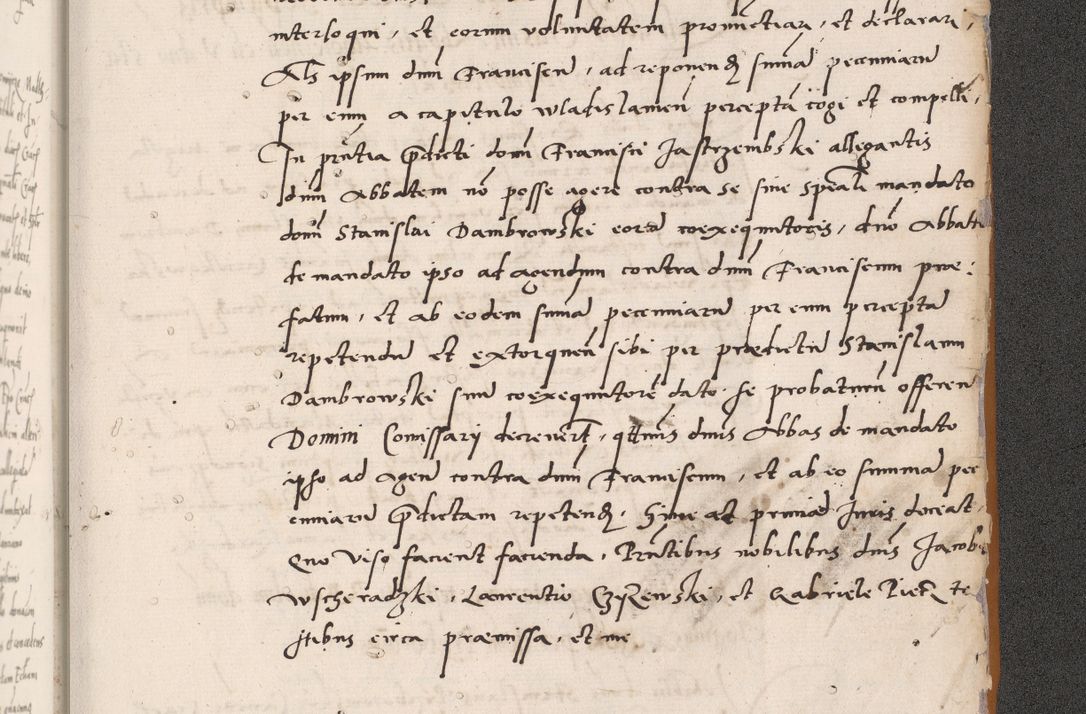 interloqui, et eorum voluntatem pronunctiari, et declarari,
Als ipsum dnm Franciscū, ad reponendꝫ sumā pecuniarū
per eum a capitulo wladislamen̄ perceptā cogi et compelli,
In pn̄tia p̄dicti domī Francisci Jastrzembski allegantis
dnm Abbatem nō posse agere contra se sine speali mandato
domī Stanislai Dambrowski eorᵈ coexequutoris, dno Abbati
de mandato ipso ad agendum contra dnm Franciscum prae:
fatum, et ab eodem sumā pecuniarū per eum perceptā
repetendū et extorquen̄ sibi per praedictū Stanislaum
Dambrowski suū coexequutorē dato, se probaturū offeren̄
Domini Comissarij decrever̄t, qt̄mis dnus Abbas de mandato
ipso ad agen̄ contra dnm Franciscum, et ab eo summā pec
cuniarū p̄dictam repetendꝫ, hinc ad primā Juris doceat.
Quo viso facient facienda, Pn̄tibus nobilibus dnis Jacobo
Wscheradzki, Laurentio Czizewski, et Gabriele Pietrꝫ te
stibus circa praemissa, et me